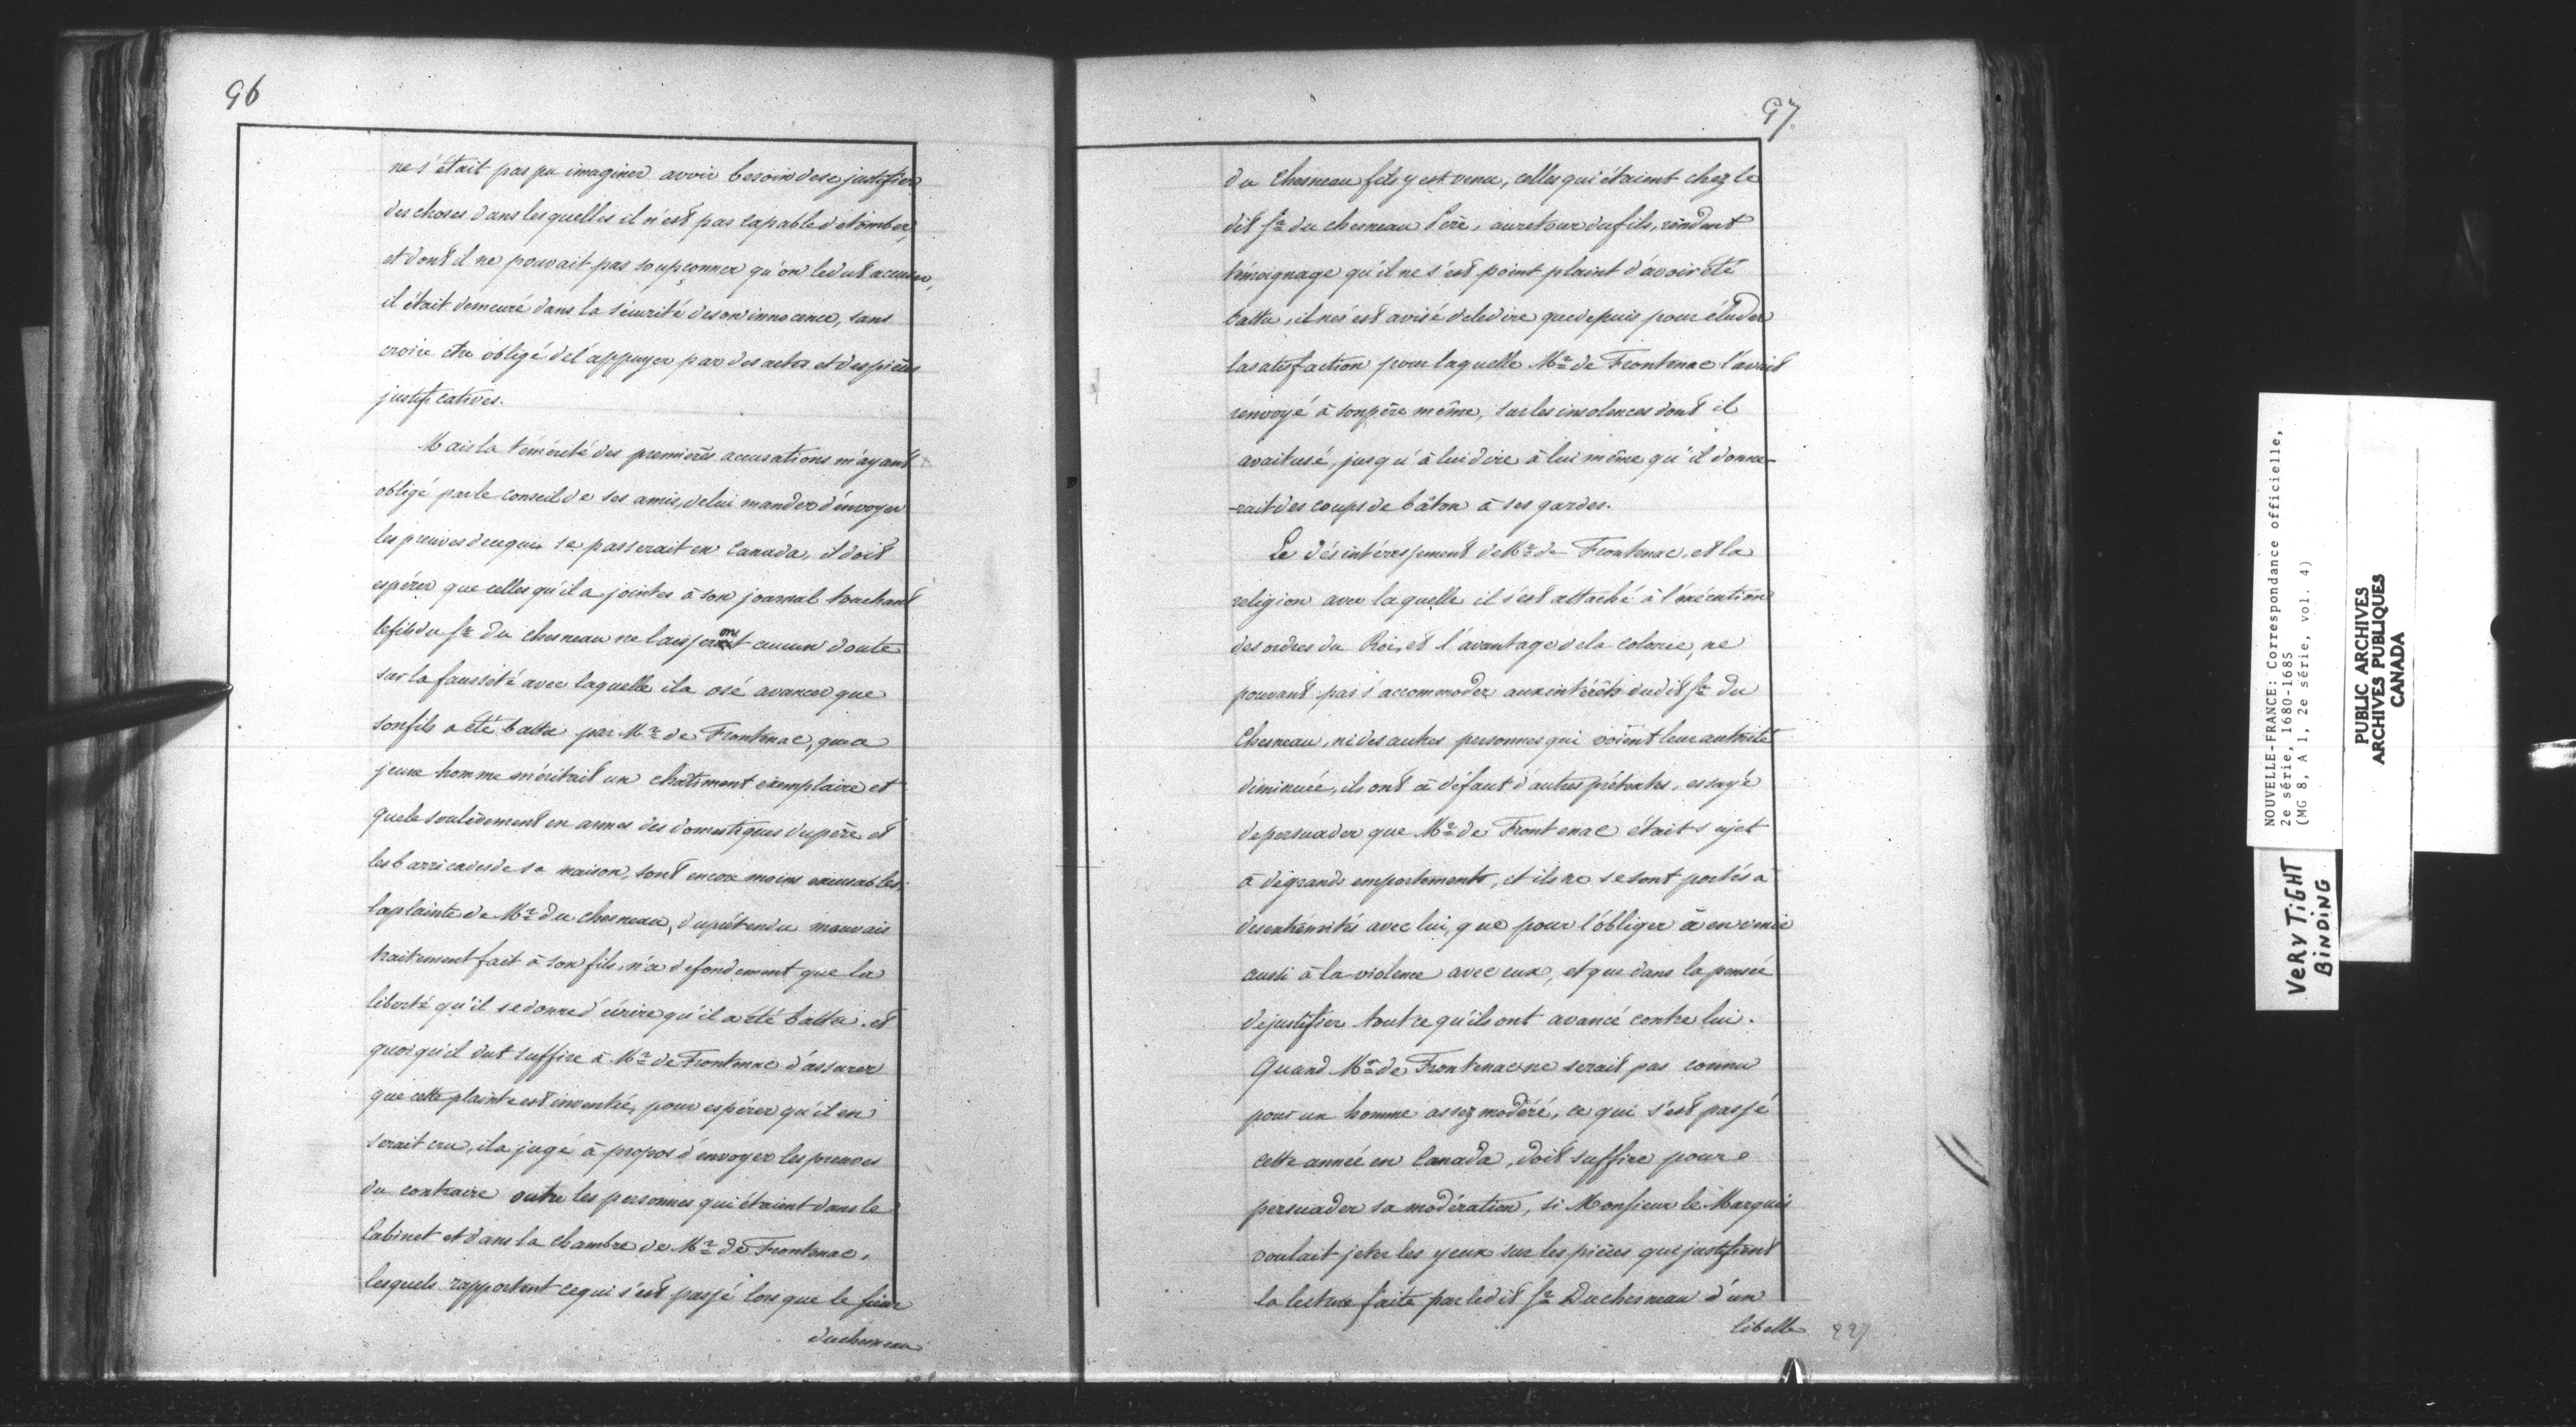 96
ne s'était pas pu imaginer avoir besoin de se justifier
des choses dans lesquelles il n'est pas capable de tomber,
et dont il ne pouvait pas soupçonner qu'on le dut accuser,
il était demeuré dans la sécurité de son innocence, sans
croire etre obligé de l'appuyer par des actes et des pièces
justificatives.
Mais la témérité des premières accusations m'ayant
obligé par le conseil de ses amis, de lui mander d'envoyer
les preuves de ce qui se passerait en Canada, il doit
espérer que celles qu'il a jointes à son journal touchant
le fils du Sr. du chesneau ne laisseront aucun doute
sur la fausseté avec laquelle il a osé avancer que
son fils a été battu par Mr. de Frontenac, que ce
jeune homme méritait un chatiment exemplaire et
que le soulèvement en armes des domestiques du père et
les barricades de sa maison, sont encore moins excusables.
la plainte de Mr. du chesneau, du prétendu mauvais
traitement fait à son fils, n'a de fondement que la
liberté qu'il se donne d'écrire qu'il a été battu. et
quoiqu'il dut suffire à Mr. de Frontenac d'assurer
que cette plainte est inventée, pour espérer qu'il en
serait cru, il a jugé à propos d'envoyer les preuves
du contraire outre les personnes qui étaient dans le
Cabinet et dans la chambre de Mr. de Frontenac,
lesquels rapportent ce qui s'est passé lorsque le sieur
duchesneau
97.
du Chesneau fils y est venu, celles qui étaient chez le
dit Sr. du chesneau Père, au retour du fils, rendent
témoignage qu'il ne s'est point plaint d'avoir été
battu, il ne s'est avisé de le dire que depuis pour éluder
la satisfaction pour laquelle Mr. de Frontenac l'avait
renvoyé à son père même, sur les insolences dont il
avait usé, jusqu'à lui dire à lui même qu'il donne-
-rait des coups de bâton à ses gardes.
Le désintéressement de Mr. de Frontenac, et la
religion avec laquelle il s'est attaché à l'exécution
des ordres du Roi, et l'avantage de la colonie, ne
pouvant pas s'accommoder aux intérêts dudit Sr. du
Chesneau, ni des autres personnes qui voient leur autorité
diminuée, ils ont à défaut d'autres prétextes, essayé
de persuader que Mr. de Frontenac était sujet
à de grands emportements, et ils ne se sont portés à
des extrémités avec lui, que pour l'obliger à en venir
aussi à la violence avec eux, et que dans la pensée
de justifier tout ce qu'ils ont avancé contre lui.
Quand Mr. de Frontenac ne serait pas connu
pour un homme assez modéré, ce qui s'est passé
cette année en Canada, doit suffire pour
persuader sa modération, si Monsieur le Marquis
voulait jeter les yeux sur les pièces qui justifient
la lecture faite par ledit Sr. Duchesneau d'un
libelle
NOUVELLE-FRANCE: Correspondance officielle,
2e série, 1680-1685
(MG 8, A 1, 2e série, vol. 4)
VERY TIGHT
BINDING
PUBLIC ARCHIVES
ARCHIVES PUBLIQUES
CANADA